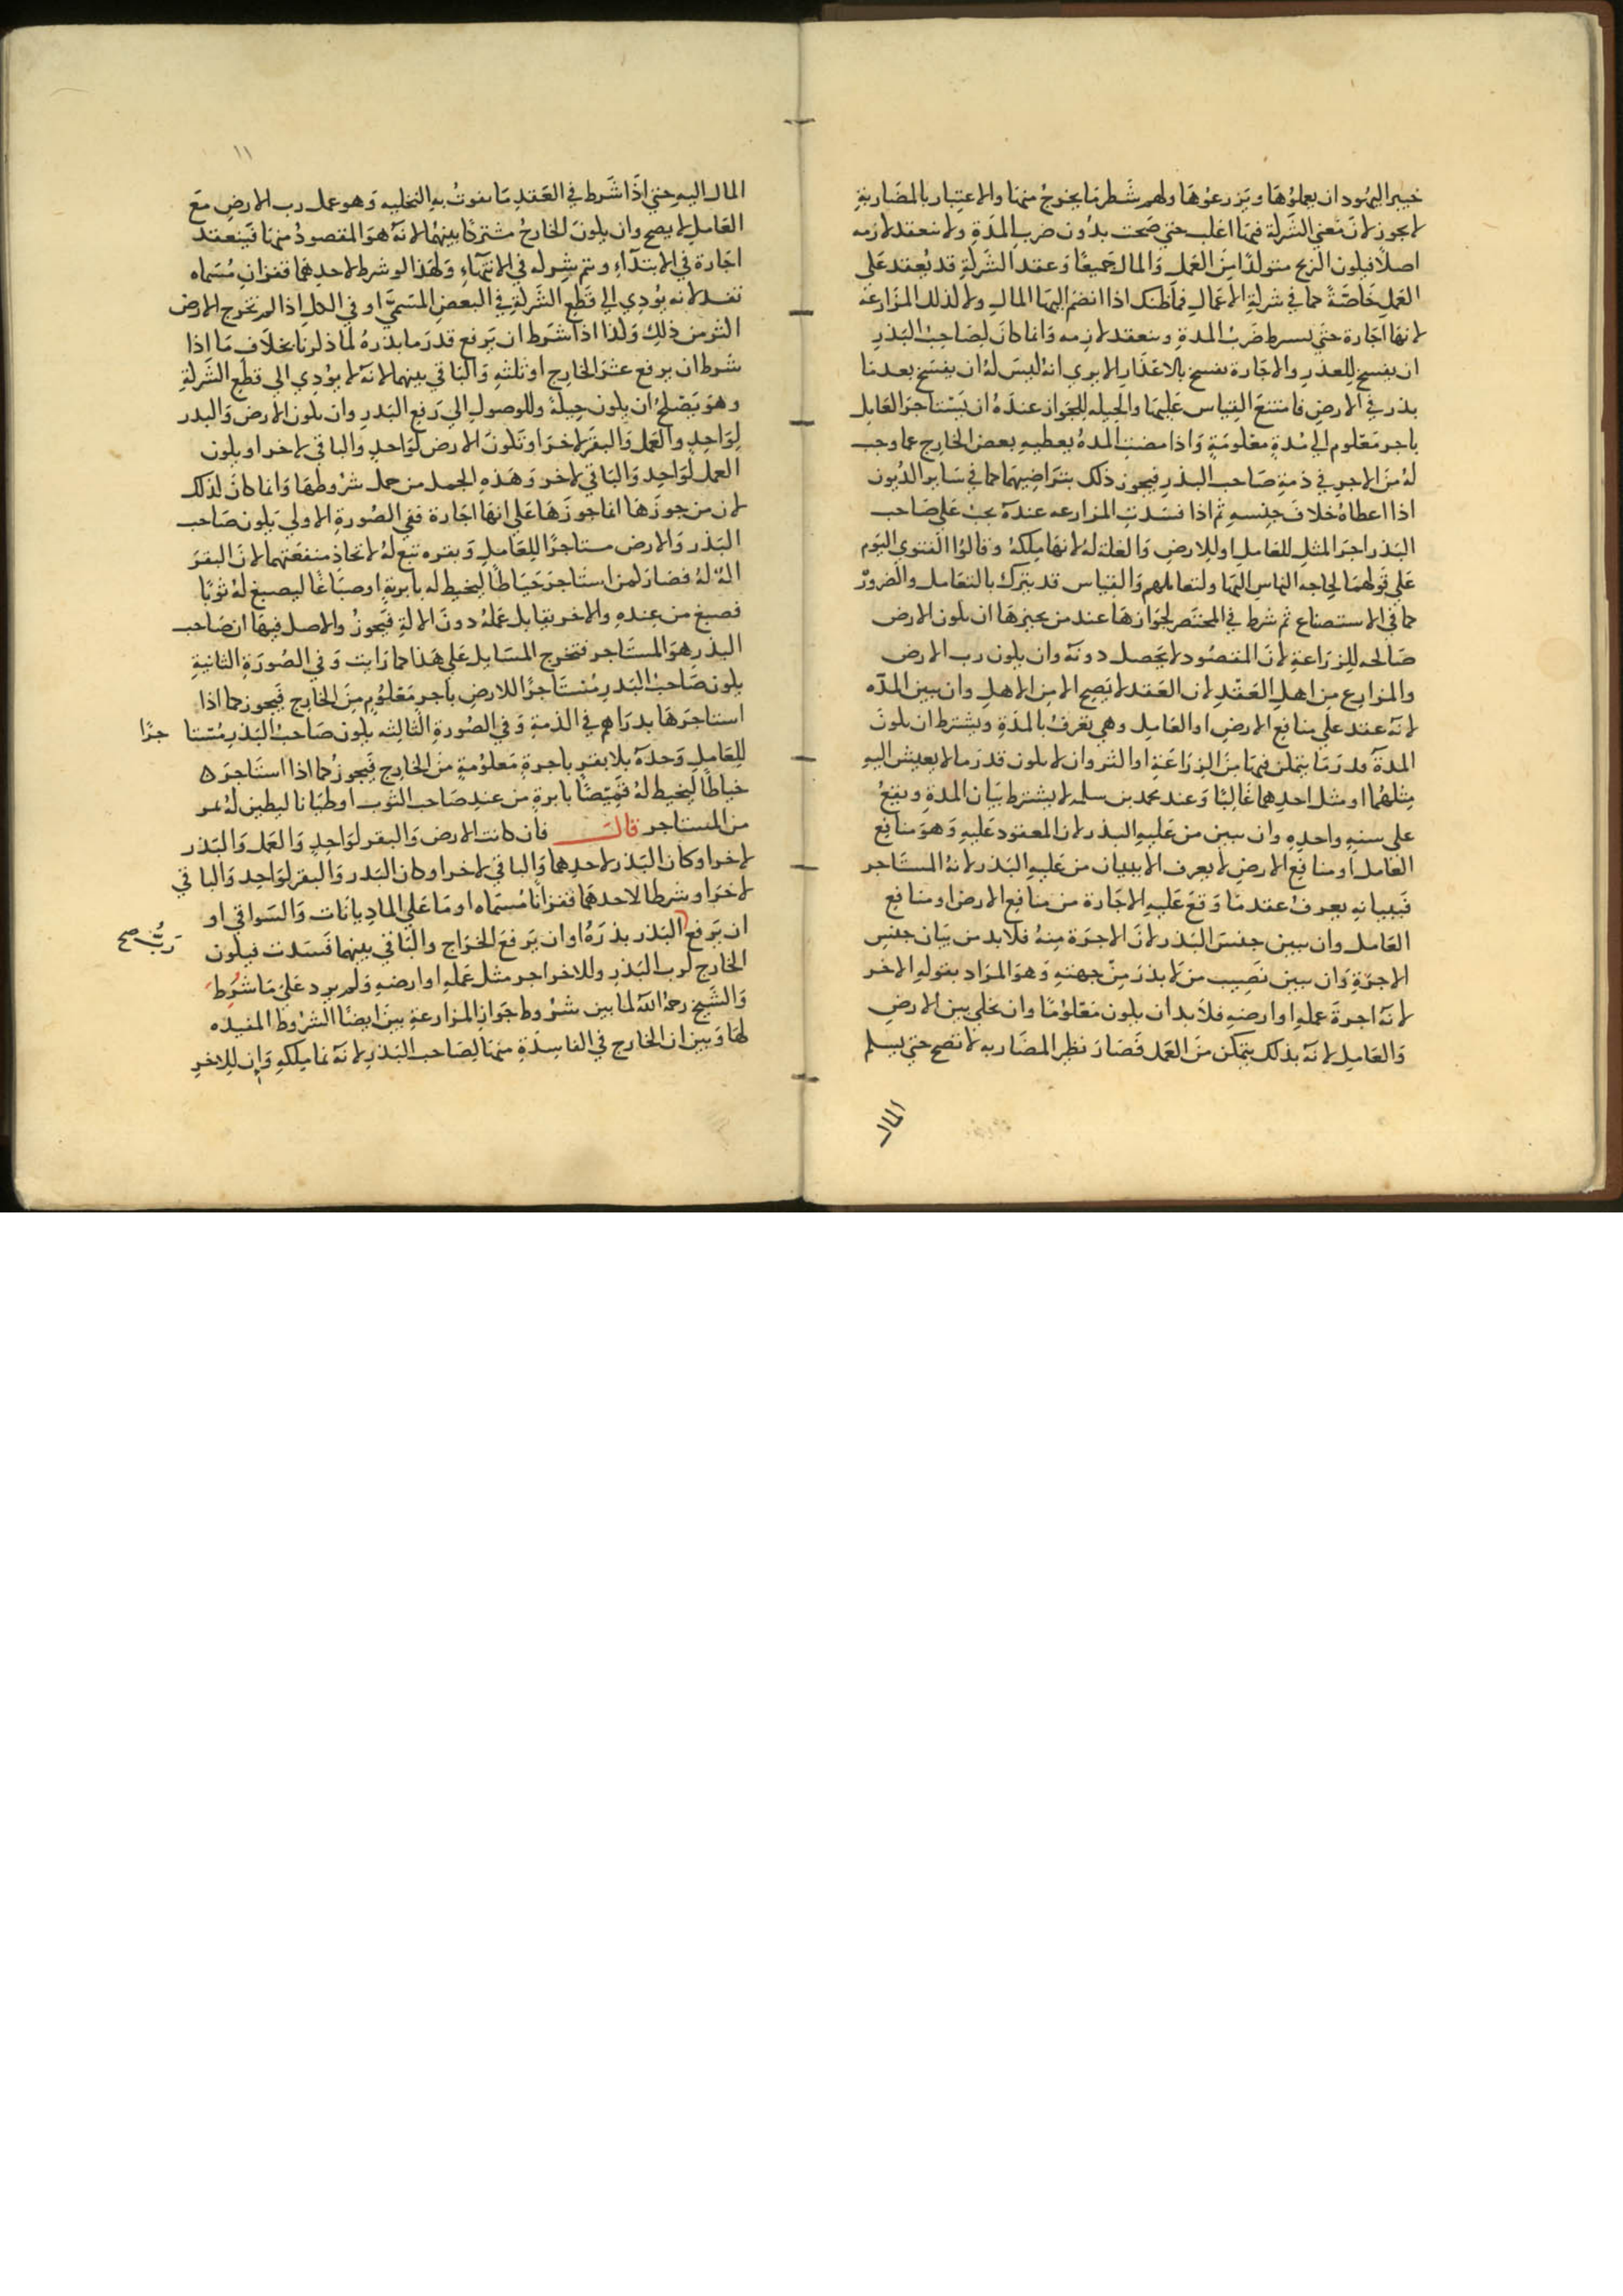 خيبر اليهود ان يعملوها ويزرعوها ولهم شطر ما يخرج منها والاعتبار بالمضاربة
لا يجوز لان معنى الشركة فيها اغلب حتى صحت بدون ضرب المدة ولا تنعقد لازمه
اصلا فيكون الربح متولدا من العمل والمال جميعا وعقد الشركة قد يعقد على
العمل خاصة كما في شركة الاعمال فما ظنك اذا انضم اليها المال ولا كذلك المزارعة
لانها اجارة حتى يشترط ضرب المدة وتنعقد لازمه وانما كان لصاحب البذر
ان يفسخ للعذر والاجارة تفسخ بالاعذار الا يرى انه ليس له ان يفسخ بعدما
بذر في الارض فامتنع القياس عليها والحيله للجواز عنده ان يستاجر العامل
باجر معلوم الى مدة معلومة واذا مضت المدة يعطيه بعض الخارج عما وجب
له من الاجر في ذمة صاحب البذر فيجوز ذلك بتراضيهما كما في ساير الديون
اذا اعطاه خلاف جنسه ثم اذا فسدت المزارعه عنده يجب على صاحب
البذر اجر المثل للعامل او للارض والغلة له لانها ملكه وقالوا الفتوى اليوم
على قولهما لحاجه الناس اليها ولتعاملهم والقياس قد يترك بالتعامل والضرورة
كما في الاستصناع ثم شرط في المختصر لجوازها عند من يجيزها ان يكون الارض
صالحه للزراعة لان المقصود لا يحصل دونه وان يكون رب الارض
والمزارع من اهل العقد لان العقد لا يصح الا من الاهل وان يبين المدّه
لانه عقد على منافع الارض او العامل وهي تعرف بالمدة ويشترط ان يكون
المدة قدر ما يتمكن فيها من الزراعة او اكثر وان لا يكون قدر ما لا يعيش اليه
مثلهما او مثل احدهما غالبا وعند محمد بن سلمه لا يشترط بيان المدة ويقع
على سنه واحده وان يبين من عليه البذر لان المعقود عليه وهو منافع
العامل او منافع الارض لا يعرف الا ببيان من عليه البذر لانه المستاجر
فببيانه يعرف عندما وقع عليه الاجارة من منافع الارض او منافع
العامل وان يبين جنس البذر لان الاجرة منه فلا بد من بيان جنس
الاجرة وان يبين نصيب من لا بذر من جهته وهو المراد بقوله الاخر
لانه اجرة عمله او ارضه فلا بد ان يكون معلوما وان يخلي بين الارض
والعامل لانه بذلك يتمكن من العمل فصار نظير المضاربه لا تصح حتى يسلم
المال
١١
المال اليه حتى اذا شرط في العقد ما يفوت به التخليه وهو عمل رب الارض مع
العامل لا يصح وان يكون الخارج مشتركا بينهما لانه هو المقصود منها فينعقد
اجارة في الابتداء ويتم شركه في الانتهاء ولهذا لو شرط لاحدهما قفزان مسماه
تفسد لانه يؤدي الى قطع الشركة في البعض المسمى او في الكل اذا لم تخرج الارض
اكثر من ذلك ولذا اذا شرط ان يرفع قدر ما بذره لما ذكرنا بخلاف ما اذا
شرط ان يرفع عشر الخارج او ثلثه والباقي بينهما لانه لا يؤدي الى قطع الشركة
وهو يصلح ان يكون حيلة وللوصول الى رفع البذر وان يكون الارض والبذر
لواحد والعمل والبقر لاخر او تكون الارض لواحد والباقي لاخر او يكون
العمل لواحد والباقي لاخر وهذه الجمل من جمله شروطها وانما كان لذلك
لان من جوزها انما جوزها على انها اجارة ففي الصورة الاولى يكون صاحب
البذر والارض مستاجرا للعامل وبقره تبع له لاتحاذ منفعتهما لان البقر
الة له فصار كمن استاجر خياطا ليخيط له بابرية او صباغا ليصبغ له ثوبا
فصبغ من عنده والاخر يقابل عمله دون الالة فيجوز والاصل فيها ان صاحب
البذر هو المستاجر فتخرج المسايل على هذا كما رايت وفي الصورة الثانية
يكون صاحب البذر مستاجرا للارض باجر معلوم من الخارج فيجوز كما اذا
استاجرها بدراهم في الذمة وفي الصورة الثالثه يكون صاحب البذر مستا جرا
للعامل وحده بلا بقر باجرة معلومة من الخارج فيجوز كما اذا استاجره
خياطا ليخيط له قميصا بابرة من عند صاحب الثوب او طيانا ليطين له بمر
من المستاجر قال فان كانت الارض والبقر لواحد والعمل والبذر
لاخر او كان البذر لاحدهما والباقي لاخر او كان البذر والبقر لواحد والباقي
لاخر او شرطا لاحدهما قفزانا مسماه او ما على الماديانات والسواقي او
ان يرفع البذر بذره او ان يرفع الخراج والباقي بينهما فسدت فيكون
رب صح
الخارج لرب البذر وللاخر اجر مثل عمله او ارضه ولم يزد على ما شرط
والشيخ رحمه الله لما بين شروط جواز المزارعة بين ايضا الشروط المفيده
لها وبين ان الخارج في الفاسدة منها لصاحب البذر لانه نما ملكه وان للاخر